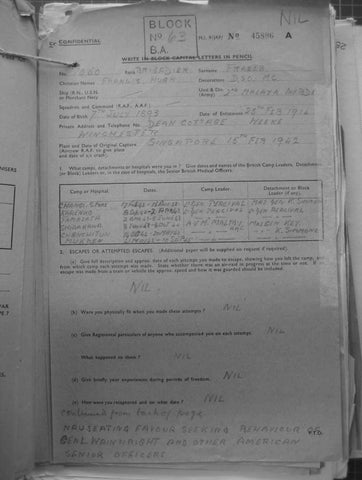 NIL
BLOCK
No 63
B.A.
CONFIDENTIAL
No 45886 A
WRITE IN BLOCK CAPITAL LETTERS IN PENCIL
No. 060 Rank BRIGADIER Surname FRASER
Christian Names FRANCIS HUGH Decorations D.S.O. M.C.
Ship (R.N., U.S.N. or Merchant Navy) Unit & Div. (Army) 2nd MALAYA INF BDE
Squadron and Command (R.A.F., A.A.F.)
Date of Birth 7TH JULY 1893 Date of Enlistment 28TH FEB 1914
Private Address and Telephone No. DEAN COTTAGE WEEKE
WINCHESTER
Place and Date of Original Capture SINGAPORE 15TH FEB 1942
(Airmen R.A.F. to give place and date of a/c crash)
1. What camps, detachments or hospitals were you in? Give dates and names of the British Camp Leaders, Detachment (or Block) Leaders or, in the case of hospitals, the Senior British Medical Officers.
Camp or Hospital. Dates. Camp Leader. Detachment or Block Leader (if any).
PERCIVAL K. SIMMONS
KARENKO PERCIVAL PERCIVAL
SHIRAKAWA KEY
K. SIMMONS
MUKDEN
2. ESCAPES OR ATTEMPTED ESCAPES. (Additional paper will be supplied on request if required).
(a) Give full description and approx. date of each attempt you made to escape, showing how you left the camp, and from which camp each attempt was made. State whether there was an air-raid in progress at the time or not. If escape was made from a train or vehicle its approx. speed and how it was guarded should be included.
NIL
(b) Were you physically fit when you made these attempts? NIL
(c) Give Regimental particulars of anyone who accompanied you on each attempt. NIL
What happened to them? NIL
(d) Give briefly your experiences during periods of freedom. NIL
(e) How were you recaptured and on what date? NIL
continued from back of page
NAUSEATING FAVOUR SEEKING BEHAVIOUR OF
GENL WAINWRIGHT AND OTHER AMERICAN
P.T.O.
SENIOR OFFICERS